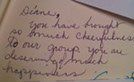 Diane,
you have brought
so much cheerfulness
to our group you are
deserving much
happiness